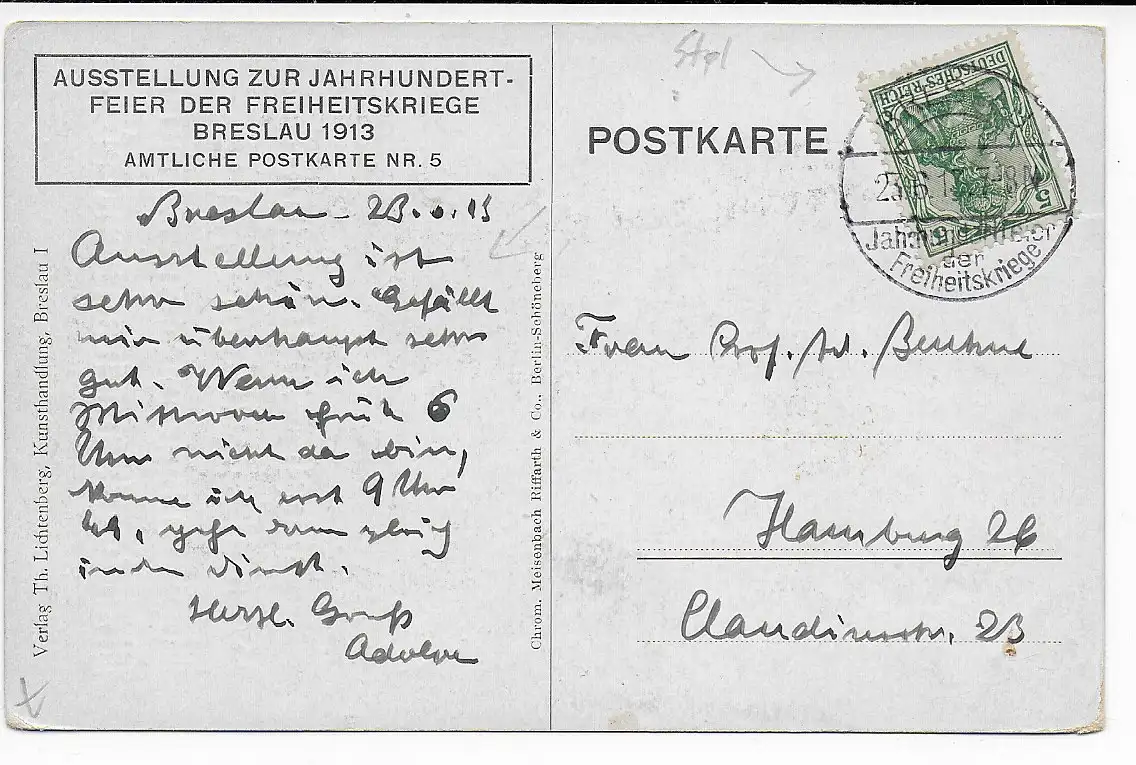 AUSSTELLUNG ZUR JAHRHUNDERT-
FEIER DER FREIHEITSKRIEGE
BRESLAU 1913
AMTLICHE POSTKARTE NR. 5
Breslau - 23.6.13
Ausstellung ist
sehr schön. Gefällt
mir überhaupt sehr
gut. Wenn ich
Mittwoch früh 6
Uhr nicht da bin,
komme ich erst 9 Uhr
gehe dann gleich
in den Dienst.
Herzl. Gruß
Verlag Th. Lichtenberg, Kunsthandlung, Breslau I
Chrom. Meisenbach Riffarth & Co., Berlin-Schöneberg
POSTKARTE
DEUTSCHES REICH
5
7-8N
Jahrhundertfeier
der
Freiheitskriege
Frau Prof. Dr.
Hamburg 26
Claudiusstr. 23